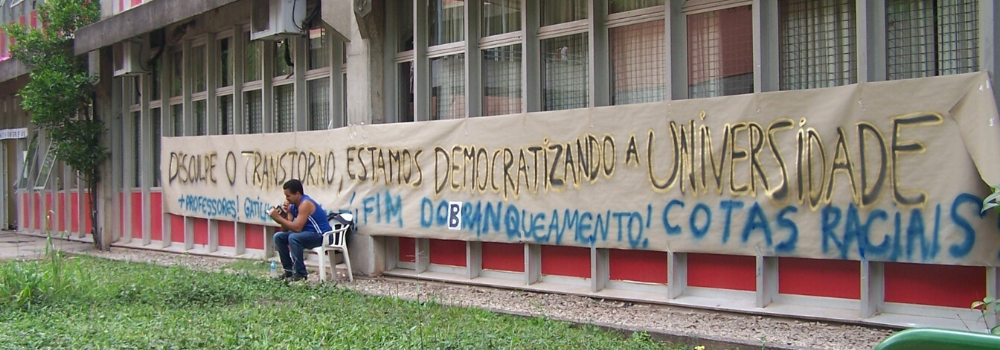 DESCULPE O TRANSTORNO, ESTAMOS DEMOCRATIZANDO A UNIVERSIDADE
+ PROFESSORES! FIM DO BRANQUEAMENTO! COTAS RACIAIS